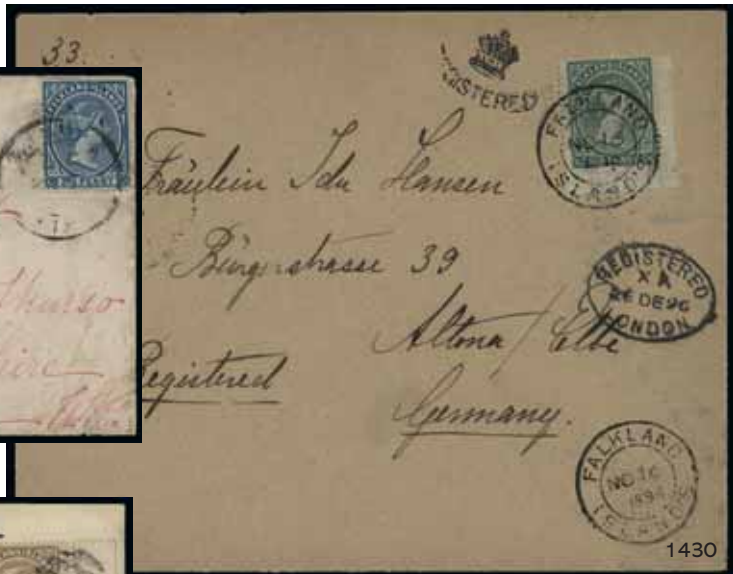 33.
REGISTERED
FALKLAND
ISLANDS
Fräulein Ida Hansen
Bürgerstrasse 39
Altona / Elbe
Germany.
Registered
REGISTERED
X A
26 DE 96
LONDON
FALKLAND
NO 16
ISLANDS
Thurso
1430